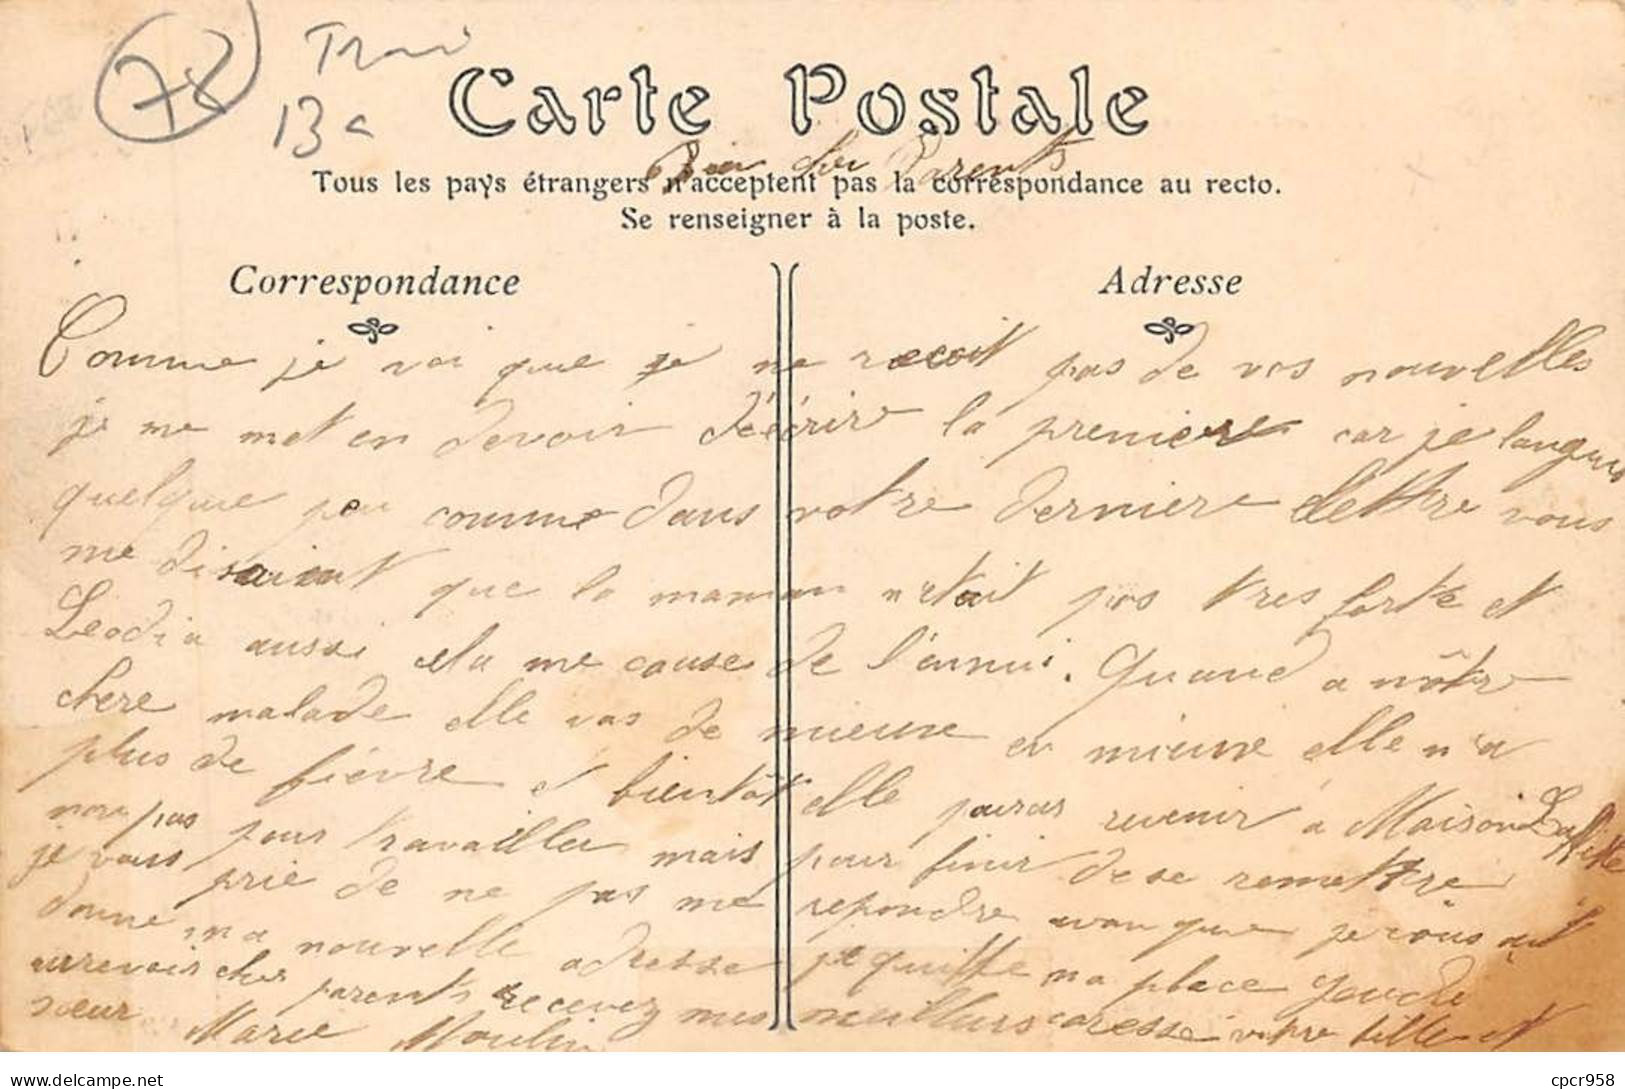 78
13
Carte Postale
Bien cher Parents
Tous les pays étrangers n'acceptent pas la correspondance au recto.
Se renseigner à la poste.
Correspondance
Adresse
Comme je voi que je ne recoit pas de vos nouvelles
je me met en devoir d'écrire la premiere car je langui
quelque peu comme dans votre derniere lettre vous
me disaient que la maman n'etait pas tres forte et
Leodia aussi cela me cause de l'ennui. Quand a nôtre
chere malade elle vas de mieux en mieux elle n'a
plus de fièvre et bientôt elle pouras revenir a Maison Laffitte
non pas pour travailler mais pour finir de se remettre
je vous prie de ne pas me repondre avan que je vous ait
donne ma nouvelle adresse je quitte ma place jeudi
aurevoir cher parents recevez mes meilleurs caresse votre fille et
sœur Marie Moulin
delcampe.net
cpcr958